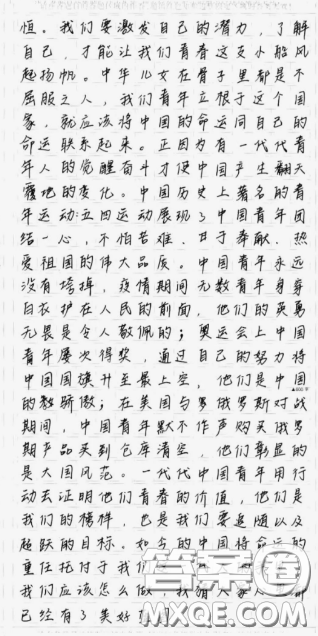 恒。我们要激发自己的潜力，了解
自己，才能让我们青春这支小船风
起扬帆。中华儿女在骨子里都是不
屈服之人，我们青年立根于这个国
家，就应该将中国的命运同自己的
命运联系起来。正因为有一代代青
年人的觉醒奋斗才使中国产生翻天
覆地的变化。中国历史上著名的青
年运动:五四运动展现了中国青年团
结一心，不怕苦难，甘于奉献，热
爱祖国的伟大品质。中国青年永远
没有垮掉，疫情期间无数青年身穿
白衣护在人民的前面，他们的英勇
无畏是令人敬佩的；奥运会上中国
青年屡次得奖，通过自己的努力将
中国国旗升至最上空，他们是中国
的骄傲；在美国与罗俄罗斯对战
期间，中国青年默不作声购买俄罗
斯产品买到仓库清空，他们彰显的
是大国风范。一代代中国青年用行
动去证明他们青春的价值，他们是
我们的榜样，也是我们要追随以及
超跃的目标。如今的中国将命运的
重任托付于我们
我们应该怎么做，我
已经有了美好
▲800字
答案圈
MXQE.COM